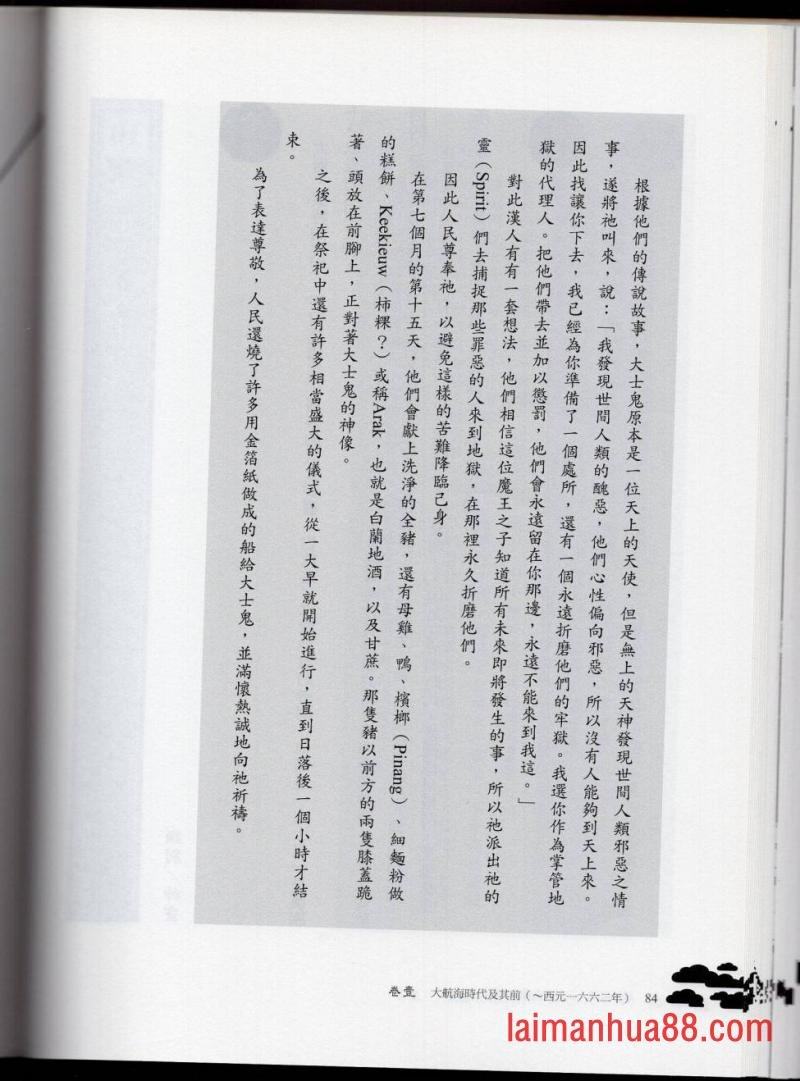 根據他們的傳說故事，大士鬼原本是一位天上的天使，但是無上的天神發現世間人類邪惡之情
事，遂將祂叫來，說：「我發現世間人類的醜惡，他們心性偏向邪惡，所以沒有人能夠到天上來。
因此找讓你下去，我已經為你準備了一個處所，還有一個永遠折磨他們的牢獄。我選你作為掌管地
獄的代理人。把他們帶去並加以懲罰，他們會永遠留在你那邊，永遠不能來到我這。」
對此漢人有有一套想法，他們相信這位魔王之子知道所有未來即將發生的事，所以祂派出祂的
靈（Spirit）們去捕捉那些罪惡的人來到地獄，在那裡永久折磨他們。
因此人民尊奉祂，以避免這樣的苦難降臨己身。
在第七個月的第十五天，他們會獻上洗淨的全豬，還有母雞、鴨、檳榔（Pinang）、細麵粉做
的糕餅、Keekieuw（柿粿？）或稱Arak，也就是白蘭地酒，以及甘蔗。那隻豬以前方的兩隻膝蓋跪
著、頭放在前腳上，正對著大士鬼的神像。
之後，在祭祀中還有許多相當盛大的儀式，從一大早就開始進行，直到日落後一個小時才結
束。
為了表達尊敬，人民還燒了許多用金箔紙做成的船給大士鬼，並滿懷熱誠地向祂祈禱。
卷壹 大航海時代及其前（～西元一六六二年） 84
laimanhua88.com